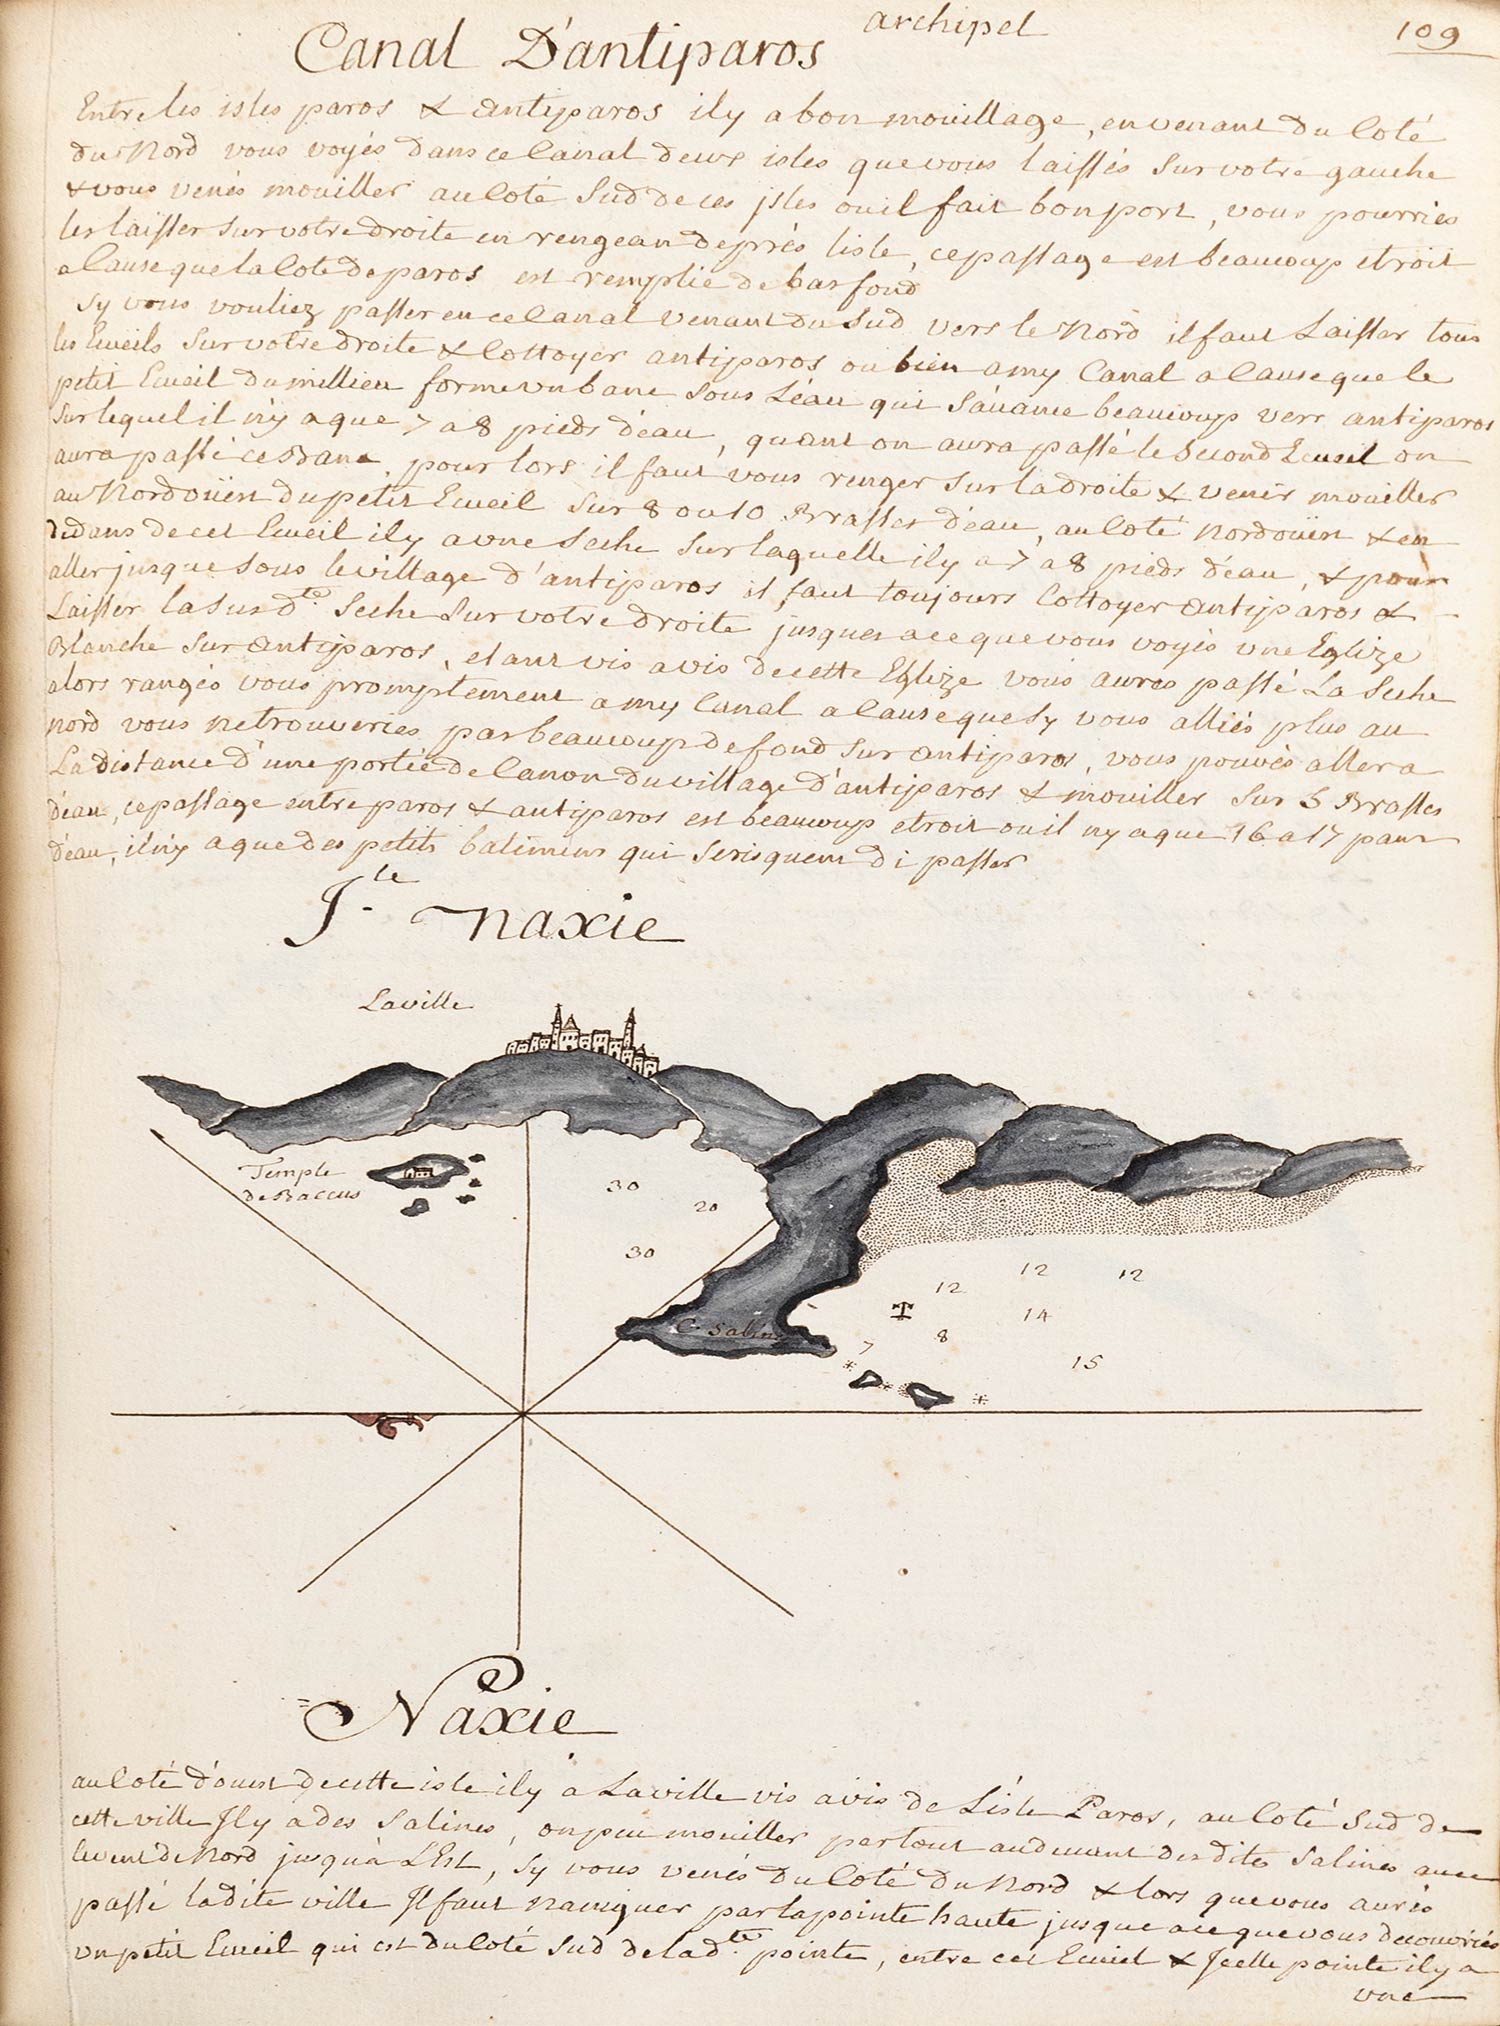 archipel
109
Canal D'antiparos
Entre les isles paros & antiparos il y a bon mouillage, en venant du Coté
du Nord vous voyés dans ce Canal deux isles que vous laissés sur votre gauche
& vous venés mouiller au Coté Sud de ces isles ou il fait bon port, vous pourriés
les laisser sur votre droite en rengean de prés lisle, ce passage est beaucoup etroit
a Cause que la Cote de paros est remplie de bas fond
Sy vous vouliez passer en ce Canal venant du Sud vers le Nord il faut Laisser tous
les Ecueils Sur votre droite & Cottoyer antiparos ou bien a my Canal a Cause que le
petit Ecueil du millieu forme un banc sous L'éau qui S'auance beaucoup vers antiparos
sur lequel il n'y a que 7 a 8 pieds d'eau, quant on aura passé le Second Ecueil on
aura passé ce Banc, pour lors il faut vous renger sur la droite & venir mouiller
au Nordoüest du petit Ecueil Sur 8 ou 10 Brasses d'eau, au Coté Nordoüest & en
dedans de cet Ecueil il y a une Seche sur laquelle il y a 7 a 8 pieds d'eau, & pour
aller jusque sous le village d'antiparos il faut toujours Cottoyer antiparos &
Laisser la susd.te Seche sur votre droite jusques a ce que vous voyés une Eglize
Blanche sur antiparos, etant vis a vis de cette Eglize vous aures passé La Seche
alors rangés vous promptement a my Canal a Cause que sy vous alliés plus au
nord vous ne trouveries pas beaucoup de fond sur antiparos, vous pouvés aller a
La distance d'une portée de Canon du village d'antiparos & mouiller sur 5 Brasses
d'éau, ce passage entre paros & antiparos est beaucoup etroit ou il n'y a que 16 a 17 pans
d'éau, il n'y a que des petits batimens qui se risquent di passer
J.le Naxie
La ville
Temple
de Baccus
30
20
30
12
12
12
14
8
7
15
C. Salin
Naxie
au Coté d'ouest de cette isle il y a La ville vis a vis de L'isle Paros, au Coté Sud de
cette ville Il y a des Salines, on peu mouiller partout audevant des dites Salines avec
le vent de Nord jusqu'a L'Est, sy vous venés du Coté du Nord & lors que vous aurés
passé la dite ville Il faut naviguer par la pointe haute jusque a ce que vous decouvriés
un petit Ecueil qui est du Coté Sud de lad.te pointe, entre cet Ecueil & Jcelle pointe il y a
une